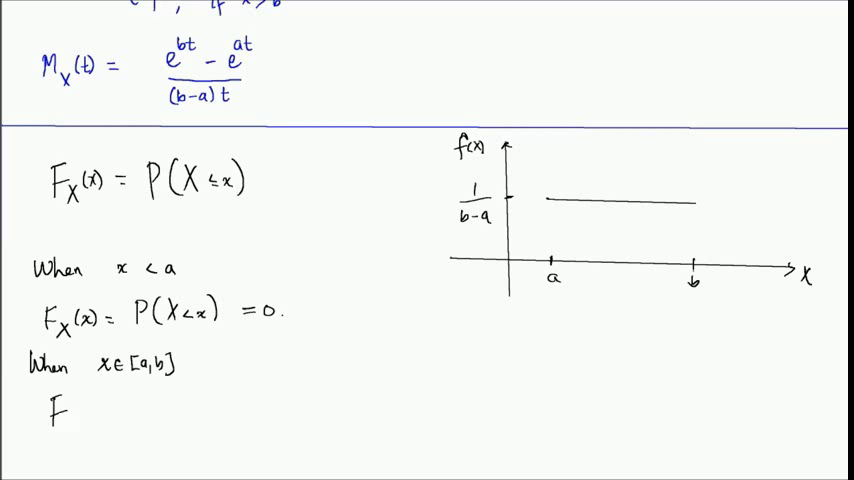 1, if x > b
M_X(t) = (e^{bt} - e^{at}) / ((b-a)t)
F_X(x) = P(X ≤ x)
When x < a
F_X(x) = P(X < x) = 0.
When x ∈ [a,b]
F
f(x)
1/(b-a)
a
b
X